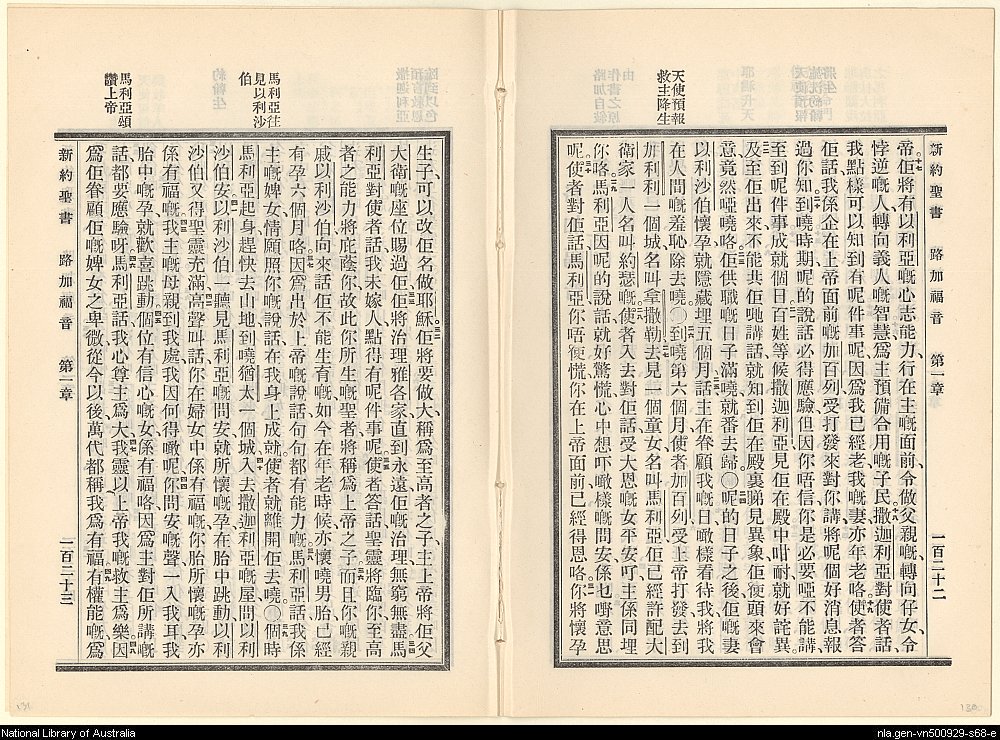 新約聖書　路加福音　第一章　一百二十二
帝佢將有以利亞嘅心志能力行在主嘅面前令做父親嘅轉向仔女令
悖逆嘅人轉向義人嘅智慧爲主預備合用嘅子民撒迦利亞對使者話
我點樣可以知到有呢件事呢因爲我已經老我嘅妻亦年老咯使者答
佢話我係企在上帝面前嘅加百列受打發來對你講將呢個好消息報
過你知到嘵時期呢的說話必得應驗但因你唔信你是必要啞不能講
至到呢件事成就個日百姓等候撒迦利亞見佢在殿中咁耐就好詫異
及至佢出來不能共佢哋講話就知到佢在殿裏睇見異象佢便頭來會
意竟然啞嘵咯佢供職嘅日子滿嘵就番去歸〇呢的日子之後佢嘅妻
以利沙伯懷孕就隱藏埋五個月話主在眷顧我嘅日噉樣看待我將我
在人間嘅羞恥除去嘵〇到嘵第六個月使者加百列受上帝打發去到
加利利一個城名叫拿撒勒去見一個童女名叫馬利亞佢已經許配大
衛家一人名叫約瑟嘅使者入去對佢話受大恩嘅女平安吖主係同埋
你咯馬利亞因呢的說話就好驚慌心中想吓噉樣嘅問安係乜嘢意思
呢使者對佢話馬利亞你唔使慌你在上帝面前已經得恩咯你將懷孕
天使預報
救主降生
生子可以改佢名做耶穌佢將要做大稱爲至高者之子主上帝將佢父
大衛嘅座位賜過佢佢將治理雅各家直到永遠佢嘅治理無窮無盡馬
利亞對使者話我未嫁人點得有呢件事呢使者答話聖靈將臨你至高
者之能力將庇蔭你故此你所生嘅聖者將稱爲上帝之子而且你嘅親
戚以利沙伯向來話佢不能生育嘅如今在年老時候亦懷嘵男胎已經
有孕六個月咯因爲出於上帝嘅說話句句都有能力嘅馬利亞話我係
主嘅婢女情願照你嘅說話在我身上成就使者就離開佢去嘵〇個時
馬利亞起身趕快去山地到嘵猶太一個城入去撒迦利亞嘅屋問以利
沙伯安以利沙伯一聽見馬利亞嘅問安就所懷嘅孕在胎中跳動以利
沙伯又得聖靈充滿高聲叫話你在婦女中係有福嘅你胎所懷嘅孕亦
係有福嘅我主嘅母親到我處我因何得噉呢你問安嘅聲一入我耳我
胎中嘅孕就歡喜跳動個位有信心嘅女係有福咯因爲主對佢所講嘅
話都要應驗呀馬利亞話我心尊主爲大我靈以上帝我嘅救主爲樂因
爲佢眷顧佢嘅婢女之卑微從今以後萬代都稱我爲有福有權能嘅爲
馬利亞往
見以利沙
伯
馬利亞頌
讚上帝
新約聖書　路加福音　第一章　一百二十三
131
130
National Library of Australia
nla.gen-vn500929-s68-e